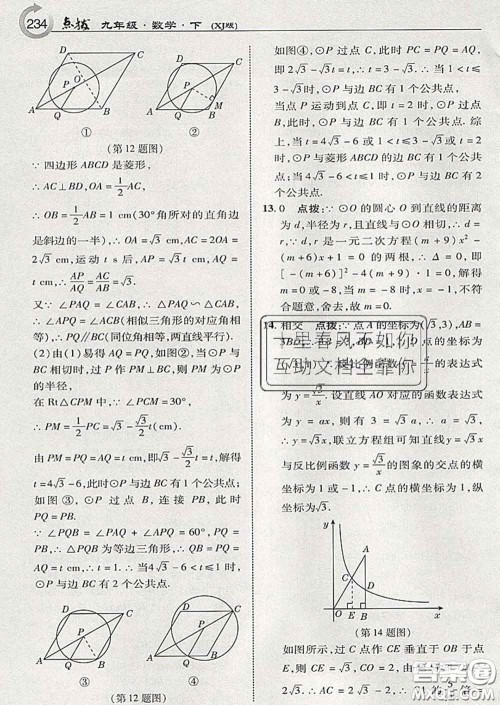 234 点拨 九年级·数学·下 (XJ版)
D C
O
P
A Q B
①
D C
P
M
A Q B
②
(第12题图)
∵ 四边形 ABCD 是菱形,
∴ AC⊥BD,OA=1/2 AC,
∴ OB=1/2 AB=1 cm(30°角所对的直角边
是斜边的一半),∴ OA=√3 cm,AC=2OA
=2√3 cm,运动 t s 后,AP=√3t cm,AQ=
t cm,∴ AP/AQ=AC/AB=√3.
又∵ ∠PAQ=∠CAB,∴ △PAQ∽△CAB,
∴ ∠AQP=∠ABC(相似三角形的对应角相
等),∴ PQ//BC(同位角相等,两直线平行).
(2)由(1)易得 AQ=PQ,如图②,当⊙P 与
BC 相切时,过 P 作 PM⊥BC,则 PM 为⊙P
的半径,
在 Rt△CPM 中,∵ ∠PCM=30°,
∴ PM=1/2 PC=√3-√3/2 t.
由 PM=PQ=AQ=t,即√3-√3/2 t=t,解得
t=4√3-6,此时⊙P 与边 BC 有 1 个公共点.
如图③,⊙P 过点 B,连接 PB,此时
PQ=PB.
∵ ∠PQB=∠PAQ+∠APQ=60°,PQ=
PB,∴ △PQB 为等边三角形,∴ QB=PQ=
AQ=t,∴ t=1. ∴ 当 4√3-6<t≤1 时,⊙P
与边 BC 有 2 个公共点.
D C
P
A Q B
③
D C
P
A Q B
④
(第12题图)
如图④,⊙P 过点 C,此时 PC=PQ,
即 2√3-√3t=t,∴ t=3-√3. ∴ 当 1<t≤
3-√3时,⊙P 与边 BC 有 1 个公共点.
当点 P 运动到点 C,即 t=2 时,⊙P 过点
B,此时,⊙P 与边 BC 有 1 个公共点. 综
上,当 t=4√3-6或 1<t≤3-√3或 t=2 时,
⊙P 与菱形 ABCD 的边 BC 有 1 个公共点;
当 4√3-6<t≤1 时,⊙P 与边 BC 有 2 个
公共点.
13. 0 点拨:∵ ⊙O 的圆心 O 到直线的距离
为 d,半径为 r,且直线与⊙O 相切,∴ d=
r. ∵ d,r 是一元二次方程(m+9)x²-
(m+6)x+1=0 的两根,∴ Δ=0,即
[-(m+6)]²-4(m+9)·1=0,解得
m=0 或 m=-8,当 m=-8 时,x=-1,不符
合题意,舍去,故 m=0.
14. 相交 点拨:∵ 点 A 的坐标为(√3,3),AB=
的表达式
为 y=√3/x. 设直线 AO 对应的函数表达式
为 y=ax,则有 3=√3a,∴ a=√3,
∴ y=√3x,联立方程组可知直线 y=√3x
与反比例函数 y=√3/x 的图象的交点的横坐标
为 1 或 -1,∴ 点 C 的横坐标为 1,纵
坐标为√3.
y
A
C
O E B x
(第14题图)
如图所示,过 C 点作 CE⊥OB 于点
E,则 CE=√3,∵ OA=2√3,OC=2,∴ AC=